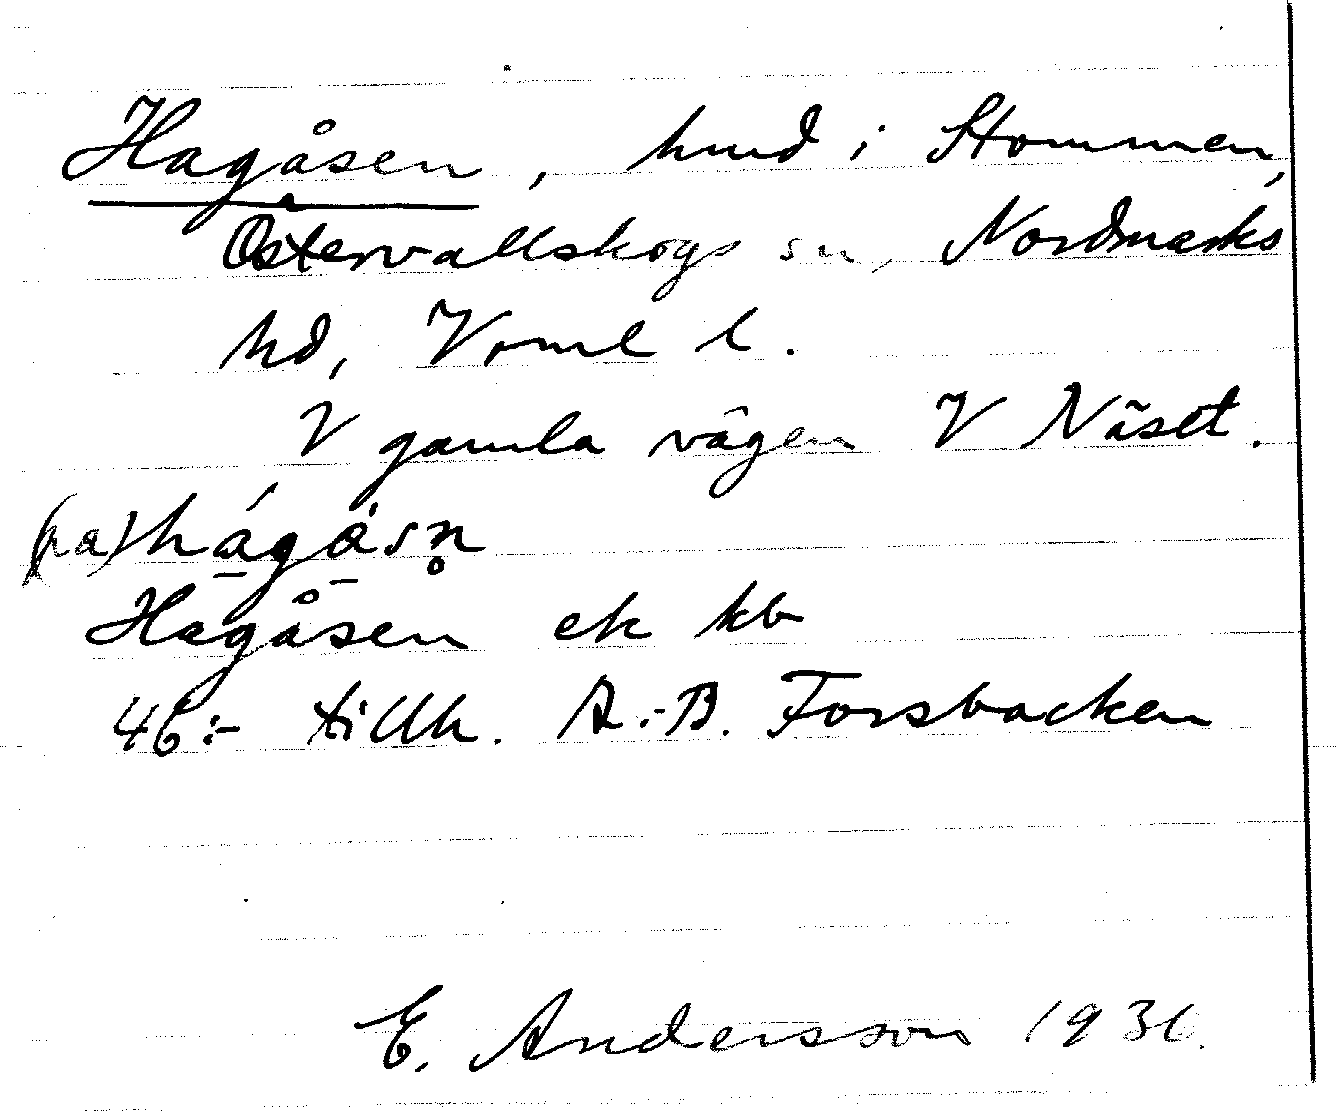 Hagåsen, hmd i Stommen,
Östervallskogs sn, Nordmarks
hd, Vrml l.
V gamla vägen V Näset.
(na) hágåsn̥
Hagåsen ek kb
46:- tillh. A.-B. Forsbacken
E. Andersson 1931.